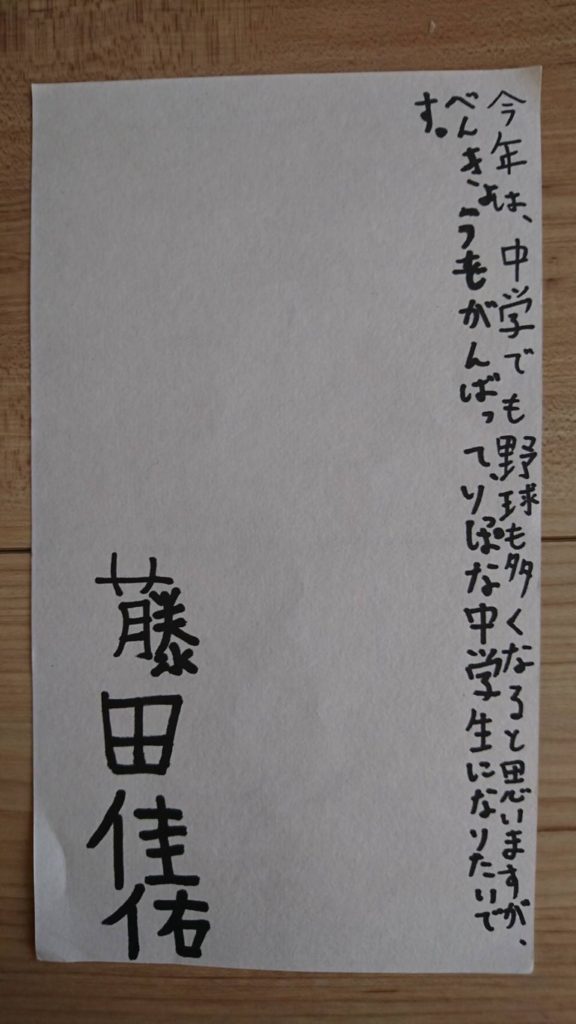 今年は、中学でも野球も多くなると思いますが、
べんきょうもがんばって、りっぱな中学生になりたいで
す。
藤田佳佑